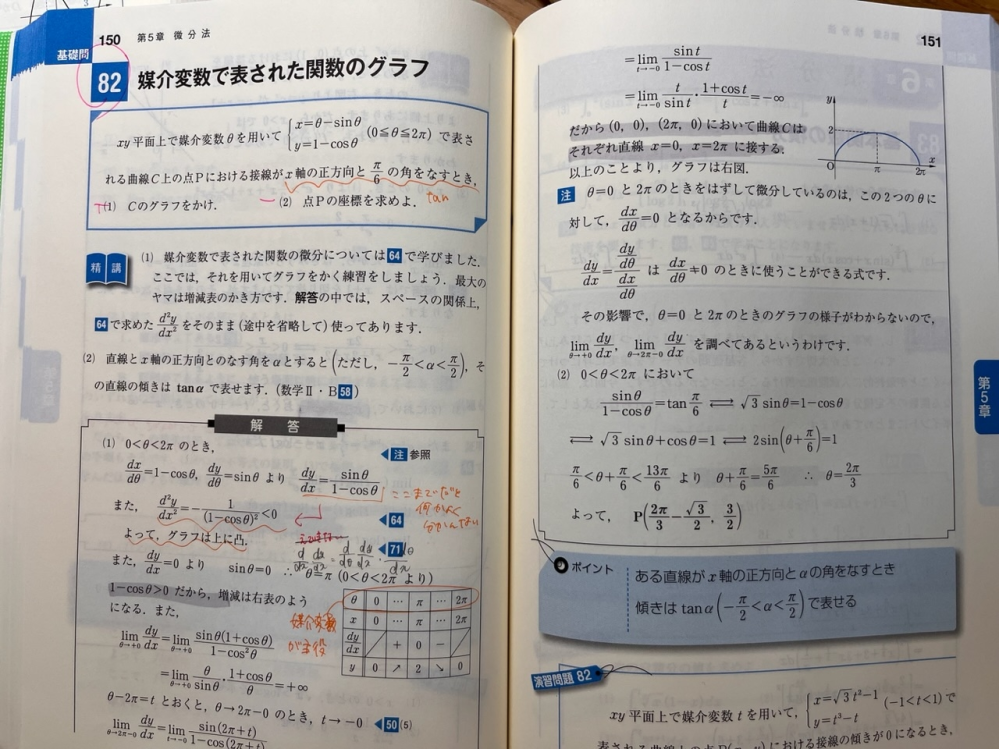 150 第5章 微分法
基礎問
82 媒介変数で表された関数のグラフ
xy平面上で媒介変数θを用いて {x=θ−sinθ y=1−cosθ (0≦θ≦2π) で表さ
れる曲線C上の点Pにおける接線がx軸の正方向と π/6 の角をなすとき,
(1) Cのグラフをかけ. (2) 点Pの座標を求めよ. tan
精講
(1) 媒介変数で表された関数の微分については64で学びました.
ここでは,それを用いてグラフをかく練習をしましょう.最大の
ヤマは増減表のかき方です.解答の中では,スペースの関係上,
64で求めた d²y/dx² をそのまま(途中を省略して)使ってあります.
(2) 直線とx軸の正方向とのなす角をαとすると(ただし, −π/2<α<π/2), そ
の直線の傾きは tanα で表せます.(数学Ⅱ・B58)
解答
(1) 0<θ<2π のとき, 注 参照
dx/dθ=1−cosθ, dy/dθ=sinθ より dy/dx=sinθ/(1−cosθ)
ここまでだと
何かよく
分かんない
また, d²y/dx²=−1/(1−cosθ)²<0 64
よって,グラフは上に凸. 71
また, dy/dx=0 より sinθ=0 ∴ θ=π (0<θ<2π より)
1−cosθ>0 だから,増減は右表のよう
になる.また,
媒介変数
が主役
θ 0 … π … 2π
x 0 … π … 2π
dy/dx + 0 −
y 0 ↗ 2 ↘ 0
lim[θ→+0] dy/dx=lim[θ→+0] sinθ(1+cosθ)/(1−cos²θ)
=lim[θ→+0] θ/sinθ・(1+cosθ)/θ=+∞
θ−2π=t とおくと, θ→2π−0 のとき, t→−0 50(5)
lim[θ→2π−0] dy/dx=lim[t→−0] sin(2π+t)/(1−cos(2π+t))
151
=lim[t→−0] sint/(1−cost)
=lim[t→−0] t/sint・(1+cost)/t=−∞
だから (0, 0), (2π, 0) において曲線Cは
それぞれ直線 x=0, x=2π に接する.
以上のことより,グラフは右図.
y
2
O π 2π x
注 θ=0 と 2π のときをはずして微分しているのは,この2つのθに
対して, dx/dθ=0 となるからです.
dy/dx=(dy/dθ)/(dx/dθ) は dx/dθ≠0 のときに使うことができる式です.
その影響で,θ=0 と 2π のときのグラフの様子がわからないので,
lim[θ→+0] dy/dx, lim[θ→2π−0] dy/dx を調べてあるというわけです.
(2) 0<θ<2π において
sinθ/(1−cosθ)=tan π/6 ⟺ √3 sinθ=1−cosθ
⟺ √3 sinθ+cosθ=1 ⟺ 2sin(θ+π/6)=1
π/6<θ+π/6<13π/6 より θ+π/6=5π/6 ∴ θ=2π/3
よって, P(2π/3−√3/2, 3/2)
第5章
ポイント
ある直線がx軸の正方向とαの角をなすとき
傾きは tanα(−π/2<α<π/2) で表せる
演習問題 82
xy平面上で媒介変数tを用いて, {x=√3t²−1 y=t³−t (−1<t<1) で